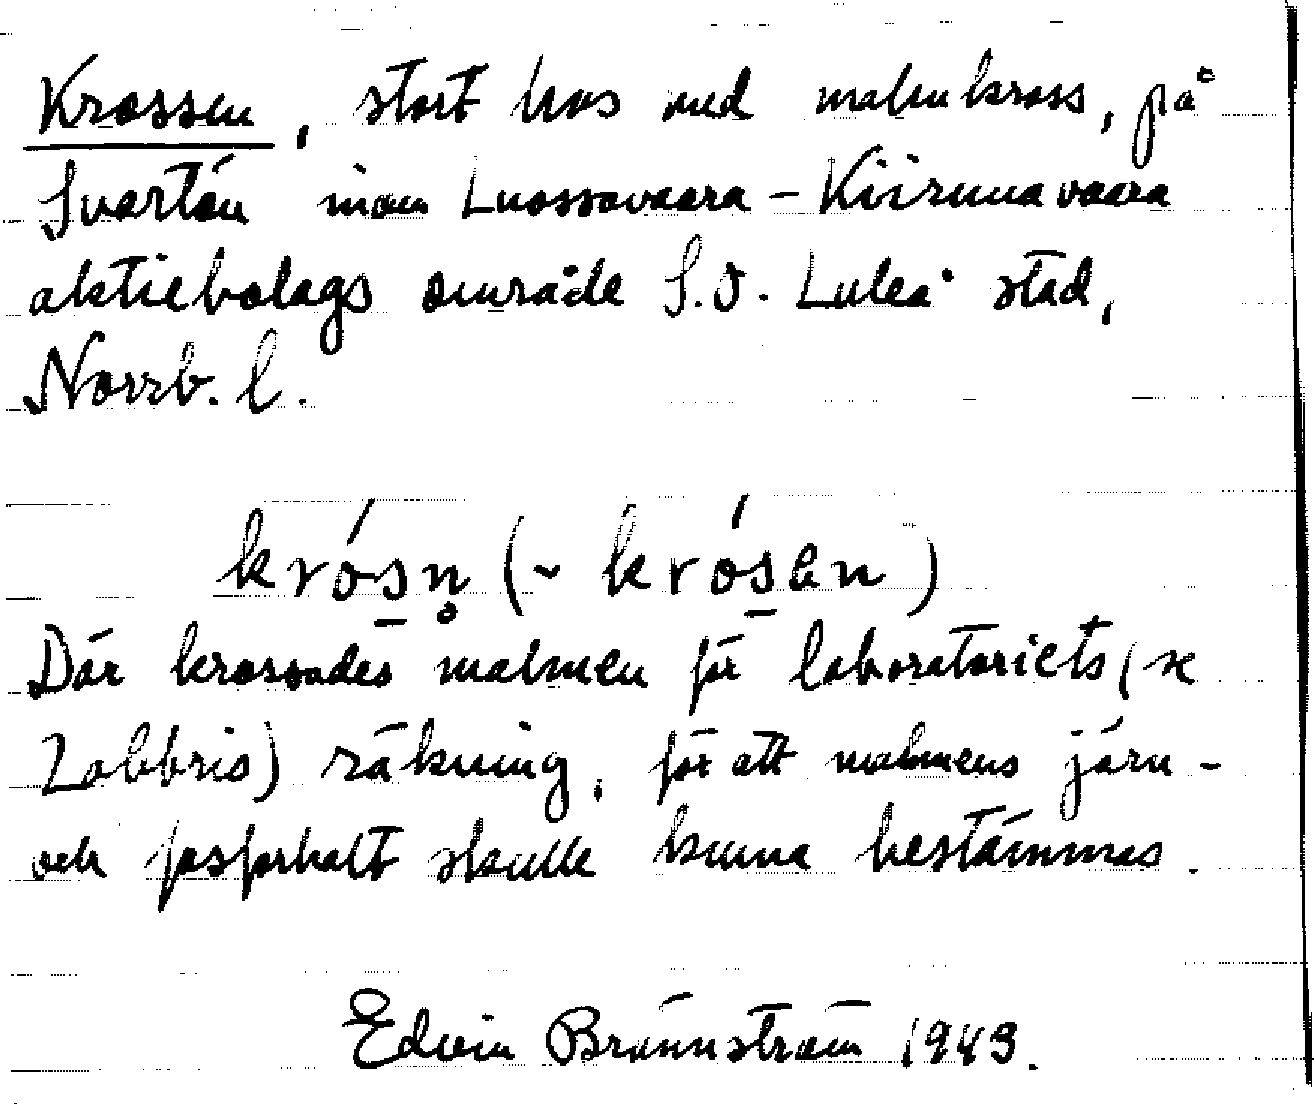 Krossen, stort hus med malmkross, på
Svartön inom Luossavaara-Kiirunavaara
aktiebolags område S.O. Luleå stad,
Norrb. l.
krósn̥ (~ krósen)
Där krossades malmen för laboratoriets (se
Labbris) räkning, för att malmens järn-
och fosforhalt skulle kunna bestämmas.
Edvin Brännström 1943.